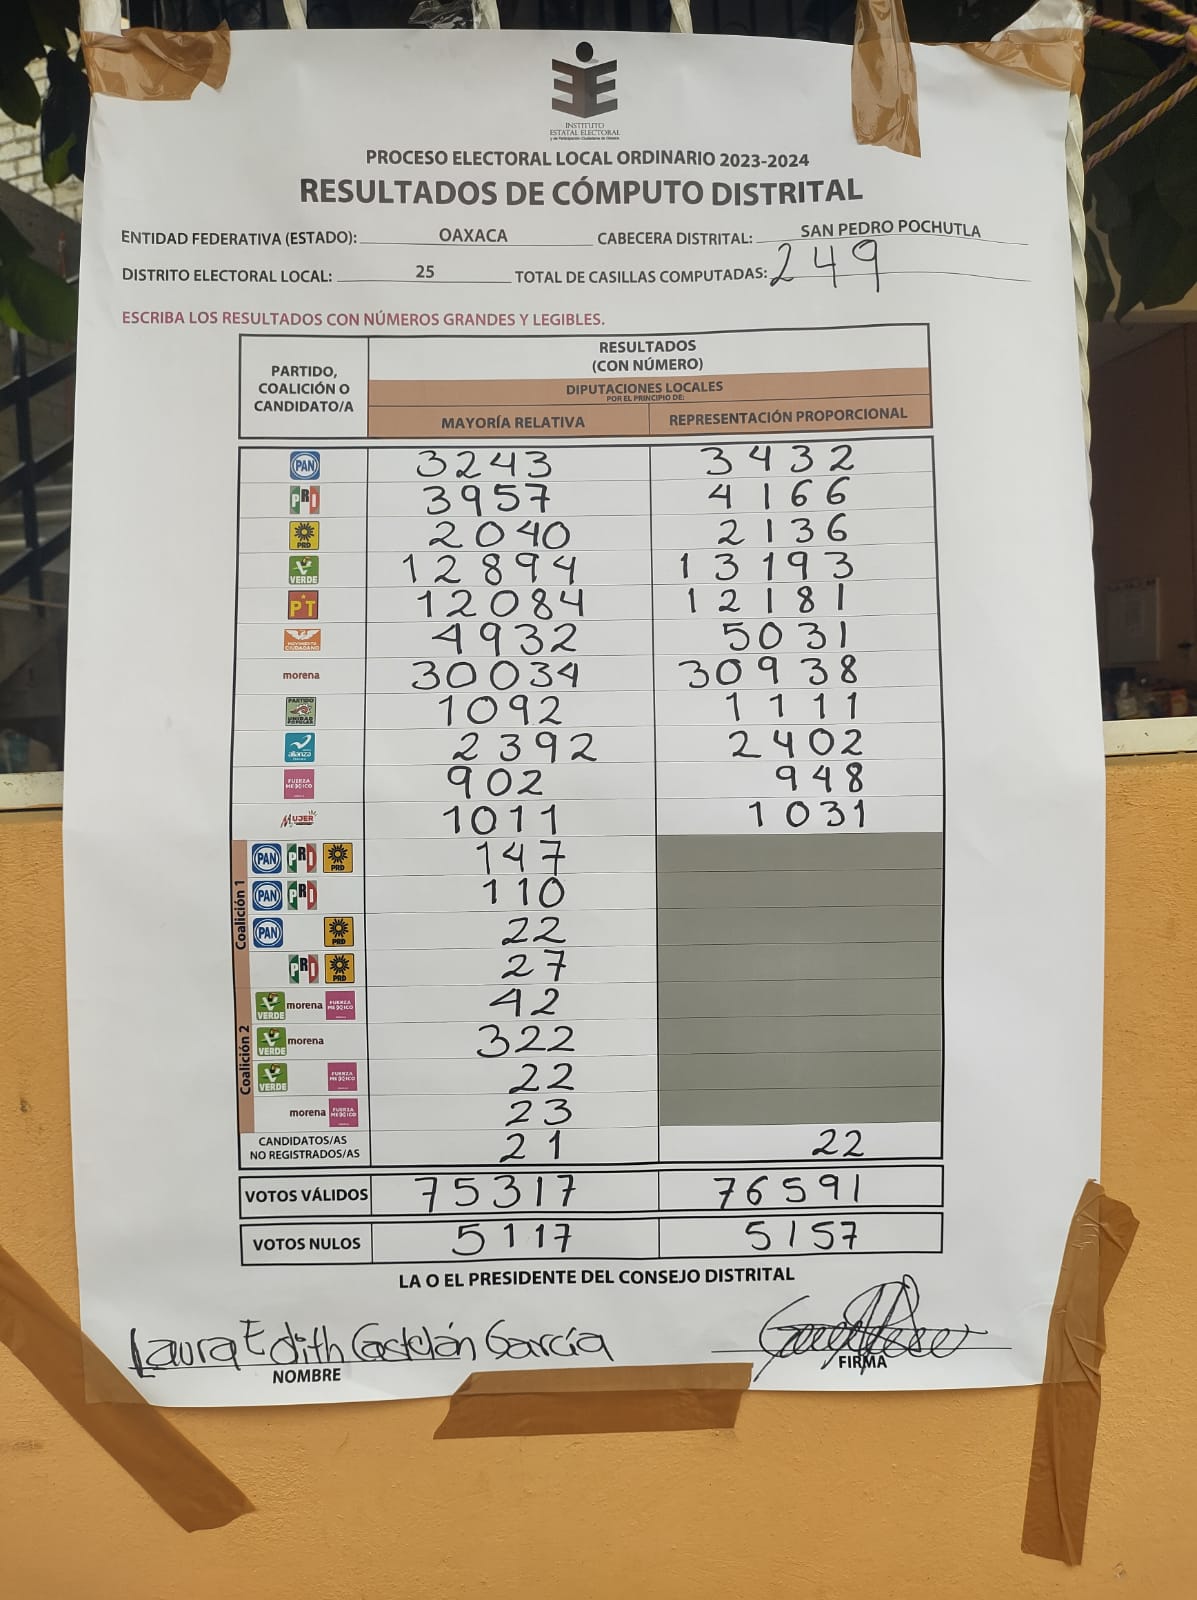 INSTITUTO
ESTATAL ELECTORAL
y de Participación Ciudadana de Oaxaca
PROCESO ELECTORAL LOCAL ORDINARIO 2023-2024
RESULTADOS DE CÓMPUTO DISTRITAL
ENTIDAD FEDERATIVA (ESTADO): OAXACA CABECERA DISTRITAL: SAN PEDRO POCHUTLA
DISTRITO ELECTORAL LOCAL: 25 TOTAL DE CASILLAS COMPUTADAS: 249
ESCRIBA LOS RESULTADOS CON NÚMEROS GRANDES Y LEGIBLES.
PARTIDO,
COALICIÓN O
CANDIDATO/A
RESULTADOS
(CON NÚMERO)
DIPUTACIONES LOCALES
POR EL PRINCIPIO DE:
MAYORÍA RELATIVA REPRESENTACIÓN PROPORCIONAL
PAN 3243 3432
PRI 3957 4166
PRD 2040 2136
VERDE 12894 13193
PT 12084 12181
MOVIMIENTO CIUDADANO 4932 5031
morena 30034 30938
PARTIDO UNIDAD POPULAR 1092 1111
alianza 2392 2402
FUERZA MEXICO 902 948
MUJER 1011 1031
Coalición 1
PAN PRI PRD 147
PAN PRI 110
PAN PRD 22
PRI PRD 27
Coalición 2
VERDE morena FUERZA MEXICO 42
VERDE morena 322
VERDE FUERZA MEXICO 22
morena FUERZA MEXICO 23
CANDIDATOS/AS
NO REGISTRADOS/AS 21 22
VOTOS VÁLIDOS 75317 76591
VOTOS NULOS 5117 5157
LA O EL PRESIDENTE DEL CONSEJO DISTRITAL
Laura Edith Castelán García
NOMBRE FIRMA